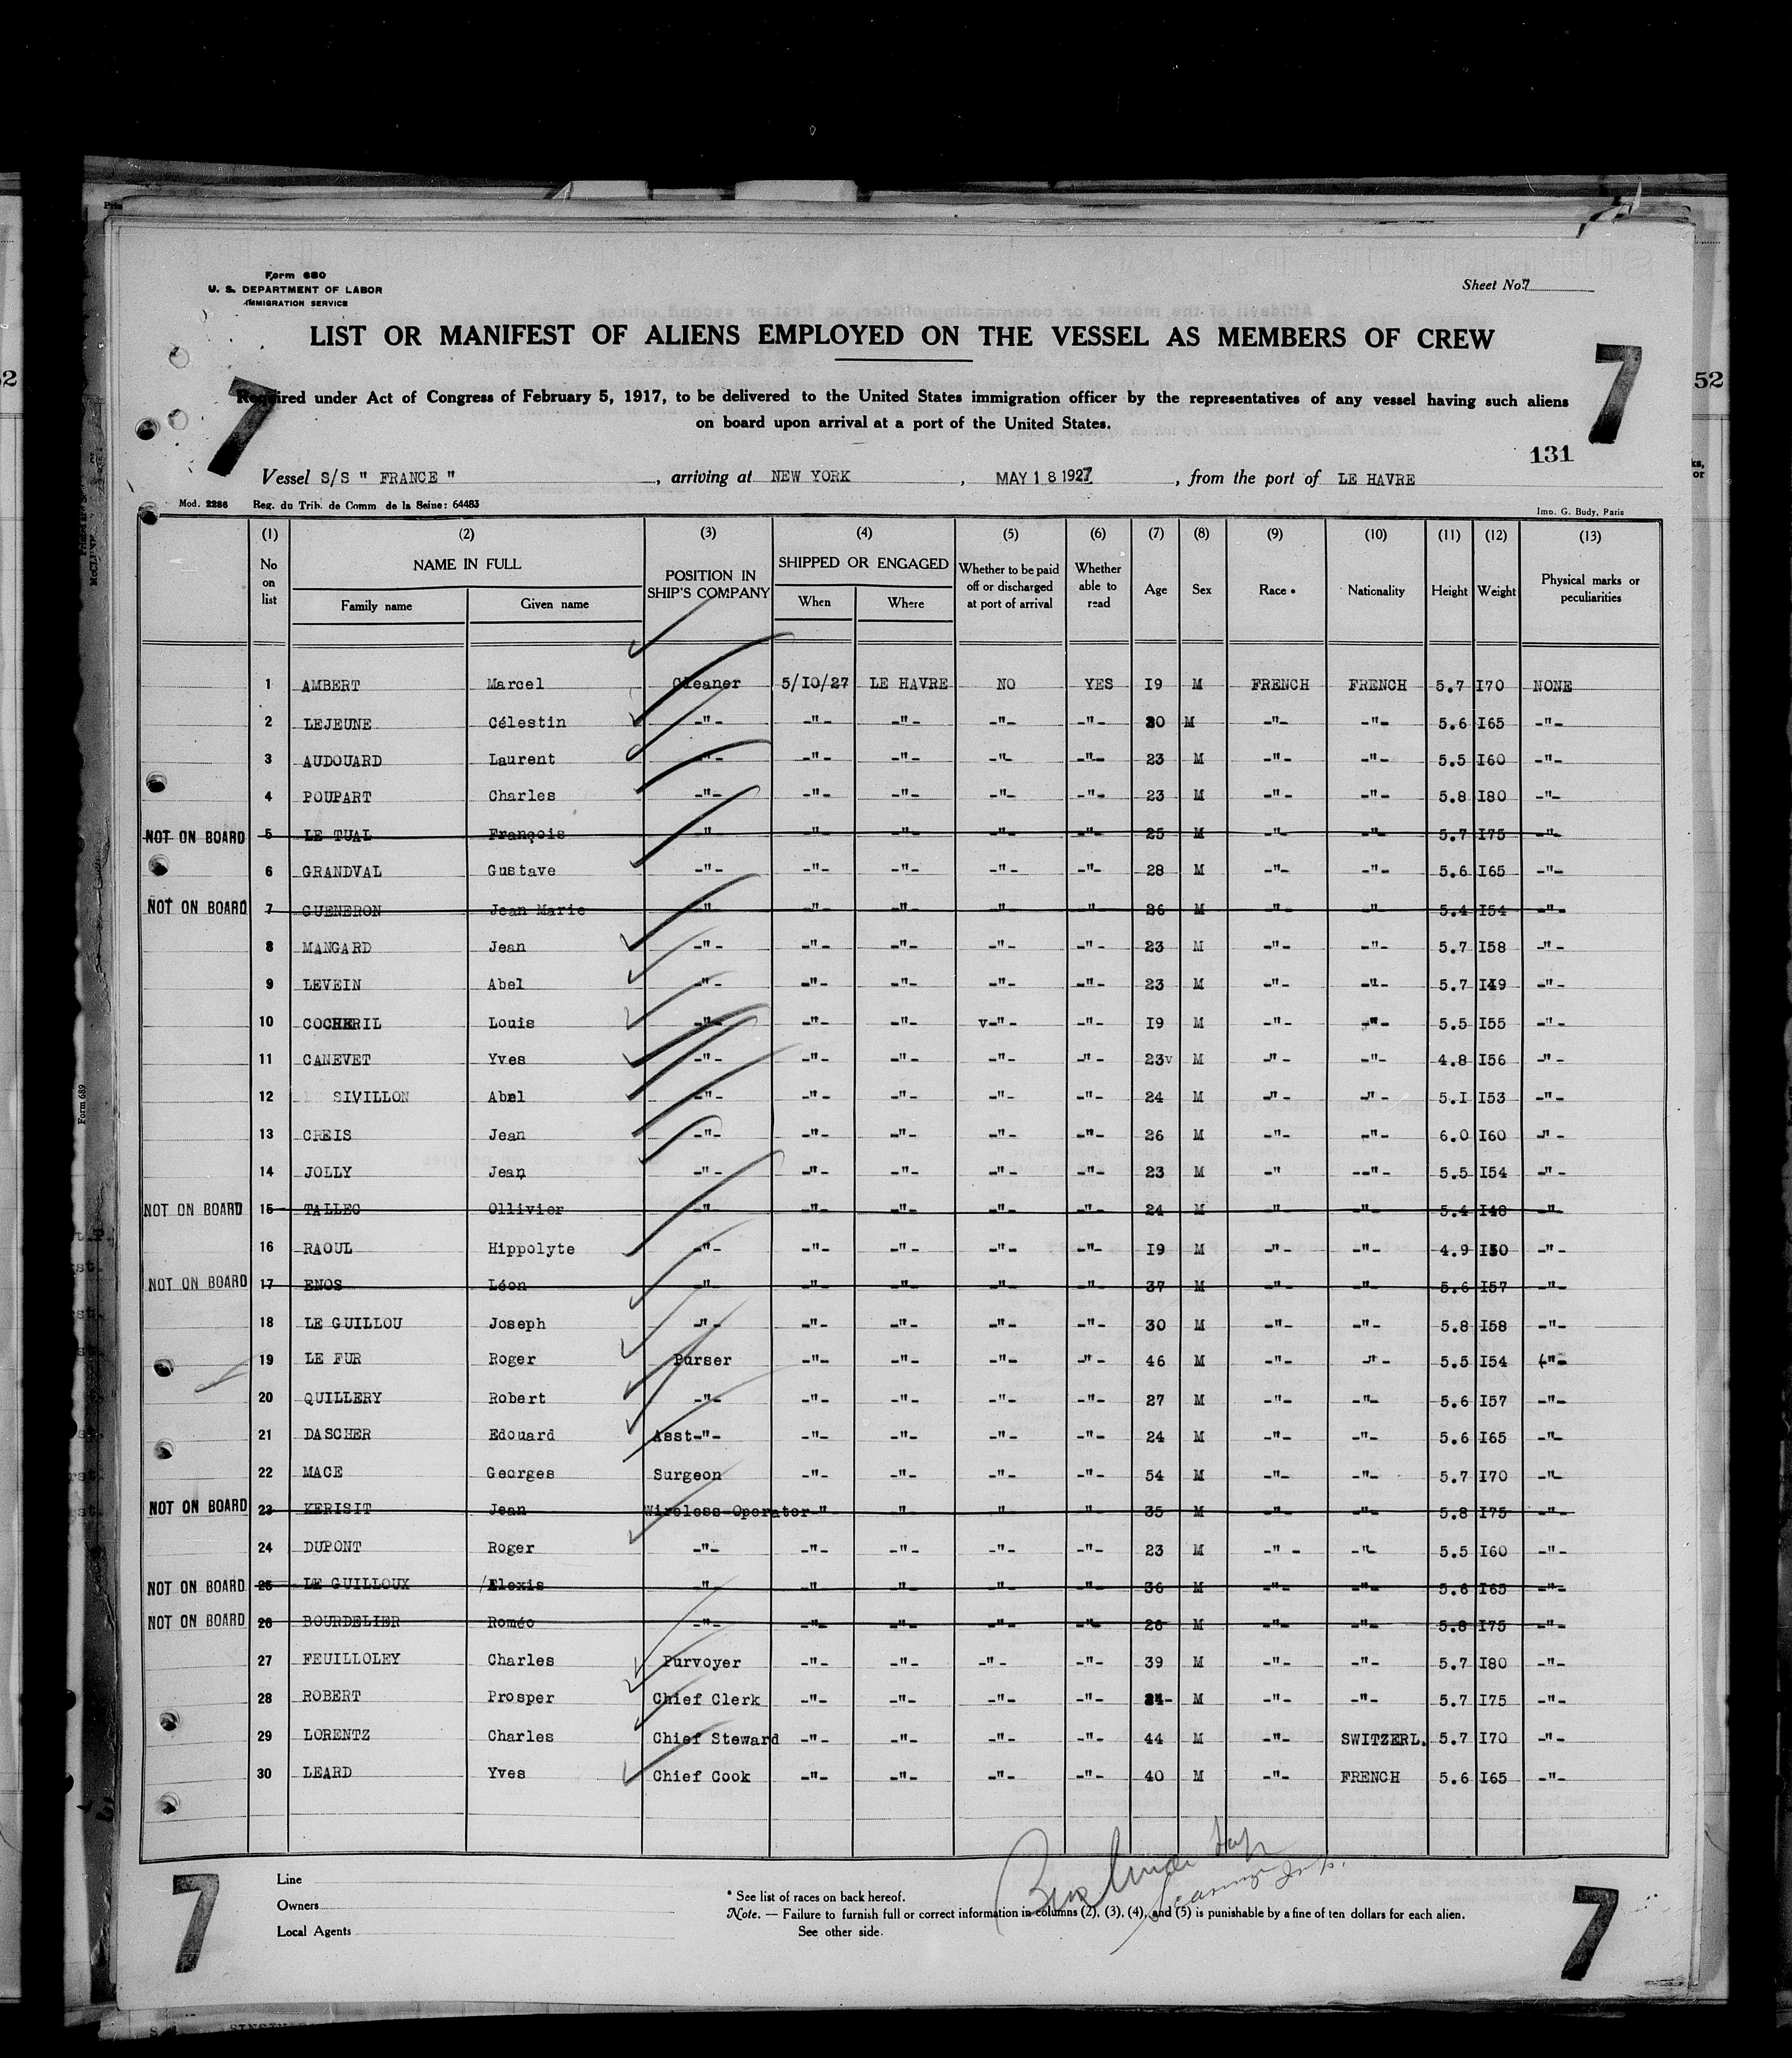 Form 680
U. S. DEPARTMENT OF LABOR
IMMIGRATION SERVICE
Sheet No. 7
LIST OR MANIFEST OF ALIENS EMPLOYED ON THE VESSEL AS MEMBERS OF CREW
7 7
Required under Act of Congress of February 5, 1917, to be delivered to the United States immigration officer by the representatives of any vessel having such aliens
on board upon arrival at a port of the United States.
131
Vessel S/S " FRANCE " , arriving at NEW YORK , MAY 18 1927 , from the port of LE HAVRE
Mod. 2286 Reg. du Trib. de Comm de la Seine: 64483 Imp. G. Budy, Paris
(1) (2) (3) (4) (5) (6) (7) (8) (9) (10) (11) (12) (13)
No on list NAME IN FULL POSITION IN SHIP'S COMPANY SHIPPED OR ENGAGED Whether to be paid off or discharged at port of arrival Whether able to read Age Sex Race * Nationality Height Weight Physical marks or peculiarities
Family name Given name When Where
1 AMBERT Marcel Cleaner 5/10/27 LE HAVRE NO YES 19 M FRENCH FRENCH 5.7 170 NONE
2 LEJEUNE Célestin -"- -"- -"- -"- -"- 20 M -"- -"- 5.6 165 -"-
3 AUDOUARD Laurent -"- -"- -"- -"- -"- 23 M -"- -"- 5.5 160 -"-
4 POUPART Charles -"- -"- -"- -"- -"- 23 M -"- -"- 5.8 180 -"-
NOT ON BOARD 5 LE TUAL François -"- -"- -"- -"- -"- 25 M -"- -"- 5.7 175 -"-
6 GRANDVAL Gustave -"- -"- -"- -"- -"- 28 M -"- -"- 5.6 165 -"-
NOT ON BOARD 7 GUENERON Jean Marie -"- -"- -"- -"- -"- 26 M -"- -"- 5.4 154 -"-
8 MANGARD Jean -"- -"- -"- -"- -"- 23 M -"- -"- 5.7 158 -"-
9 LEVEIN Abel -"- -"- -"- -"- -"- 23 M -"- -"- 5.7 149 -"-
10 COCHERIL Louis -"- -"- -"- v-"- -"- 19 M -"- -"- 5.5 155 -"-
11 CANEVET Yves -"- -"- -"- -"- -"- 23v M -"- -"- 4.8 156 -"-
12 SIVILLON Abel -"- -"- -"- -"- -"- 24 M -"- -"- 5.1 153 -"-
13 CREIS Jean -"- -"- -"- -"- -"- 26 M -"- -"- 6.0 160 -"-
14 JOLLY Jean -"- -"- -"- -"- -"- 23 M -"- --"- 5.5 154 -"-
NOT ON BOARD 15 TALLEC Ollivier -"- -"- -"- -"- -"- 24 M -"- -"- 5.4 148 -"-
16 RAOUL Hippolyte -"- -"- -"- -"- -"- 19 M -"- -"- 4.9 150 -"-
NOT ON BOARD 17 ENOS Léon -"- -"- -"- -"- -"- 37 M -"- -"- 5.6 157 -"-
18 LE GUILLOU Joseph -"- -"- -"- -"- -"- 30 M -"- -"- 5.8 158 -"-
19 LE FUR Roger Purser -"- -"- -"- -"- 46 M -"- -"- 5.5 154 -"-
20 QUILLERY Robert -"- -"- -"- -"- -"- 27 M -"- -"- 5.6 157 -"-
21 DASCHER Edouard Asst-"- -"- -"- -"- -"- 24 M -"- -"- 5.6 165 -"-
22 MACE Georges Surgeon -"- -"- -"- -"- 54 M -"- -"- 5.7 170 -"-
NOT ON BOARD 23 KERISIT Jean Wireless Operator -"- -"- -"- -"- 35 M -"- -"- 5.8 175 -"-
24 DUPONT Roger -"- -"- -"- -"- -"- 23 M -"- -"- 5.5 160 -"-
NOT ON BOARD 25 LE GUILLOUX Alexis -"- -"- -"- -"- -"- 36 M -"- -"- 5.6 165 -"-
NOT ON BOARD 26 BOURDELIER Roméo -"- -"- -"- -"- -"- 26 M -"- -"- 5.8 175 -"-
27 FEUILLOLEY Charles Purvoyer -"- -"- -"- -"- 39 M -"- -"- 5.7 180 -"-
28 ROBERT Prosper Chief Clerk -"- -"- -"- -"- M -"- -"- 5.7 175 -"-
29 LORENTZ Charles Chief Steward -"- -"- -"- -"- 44 M -"- SWITZERL. 5.7 170 -"-
30 LEARD Yves Chief Cook -"- -"- -"- -"- 40 M -"- FRENCH 5.6 165 -"-
Line
Owners
Local Agents
* See list of races on back hereof.
Note. — Failure to furnish full or correct information in columns (2), (3), (4), and (5) is punishable by a fine of ten dollars for each alien.
See other side.
7 7
Form 689
52